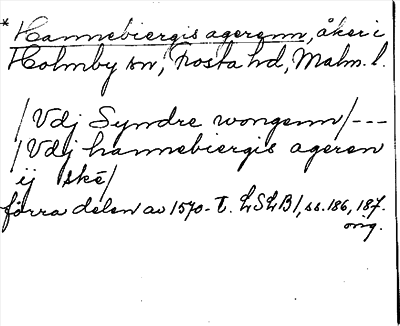 * Hannebiergis agerenn, åker i
Holmby sn, Frosta hd, Malm. l.
/Vdj Syndre wongenn/---
/Vdj hannebiergis ageren
ij ské/
förra delen av 1570-t. LSLB1, ss. 186, 187.
orig.